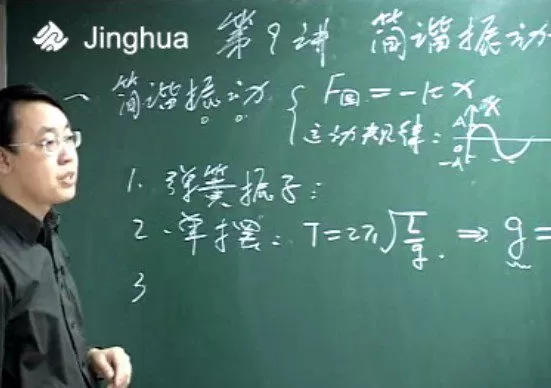 Jinghua
第9讲 简谐振动
一、简谐振动 { F回 = -kx
运动规律:
A
0
-A
x
1. 弹簧振子:
2. 单摆: T=2π√(L/g) ⇒ g=
3